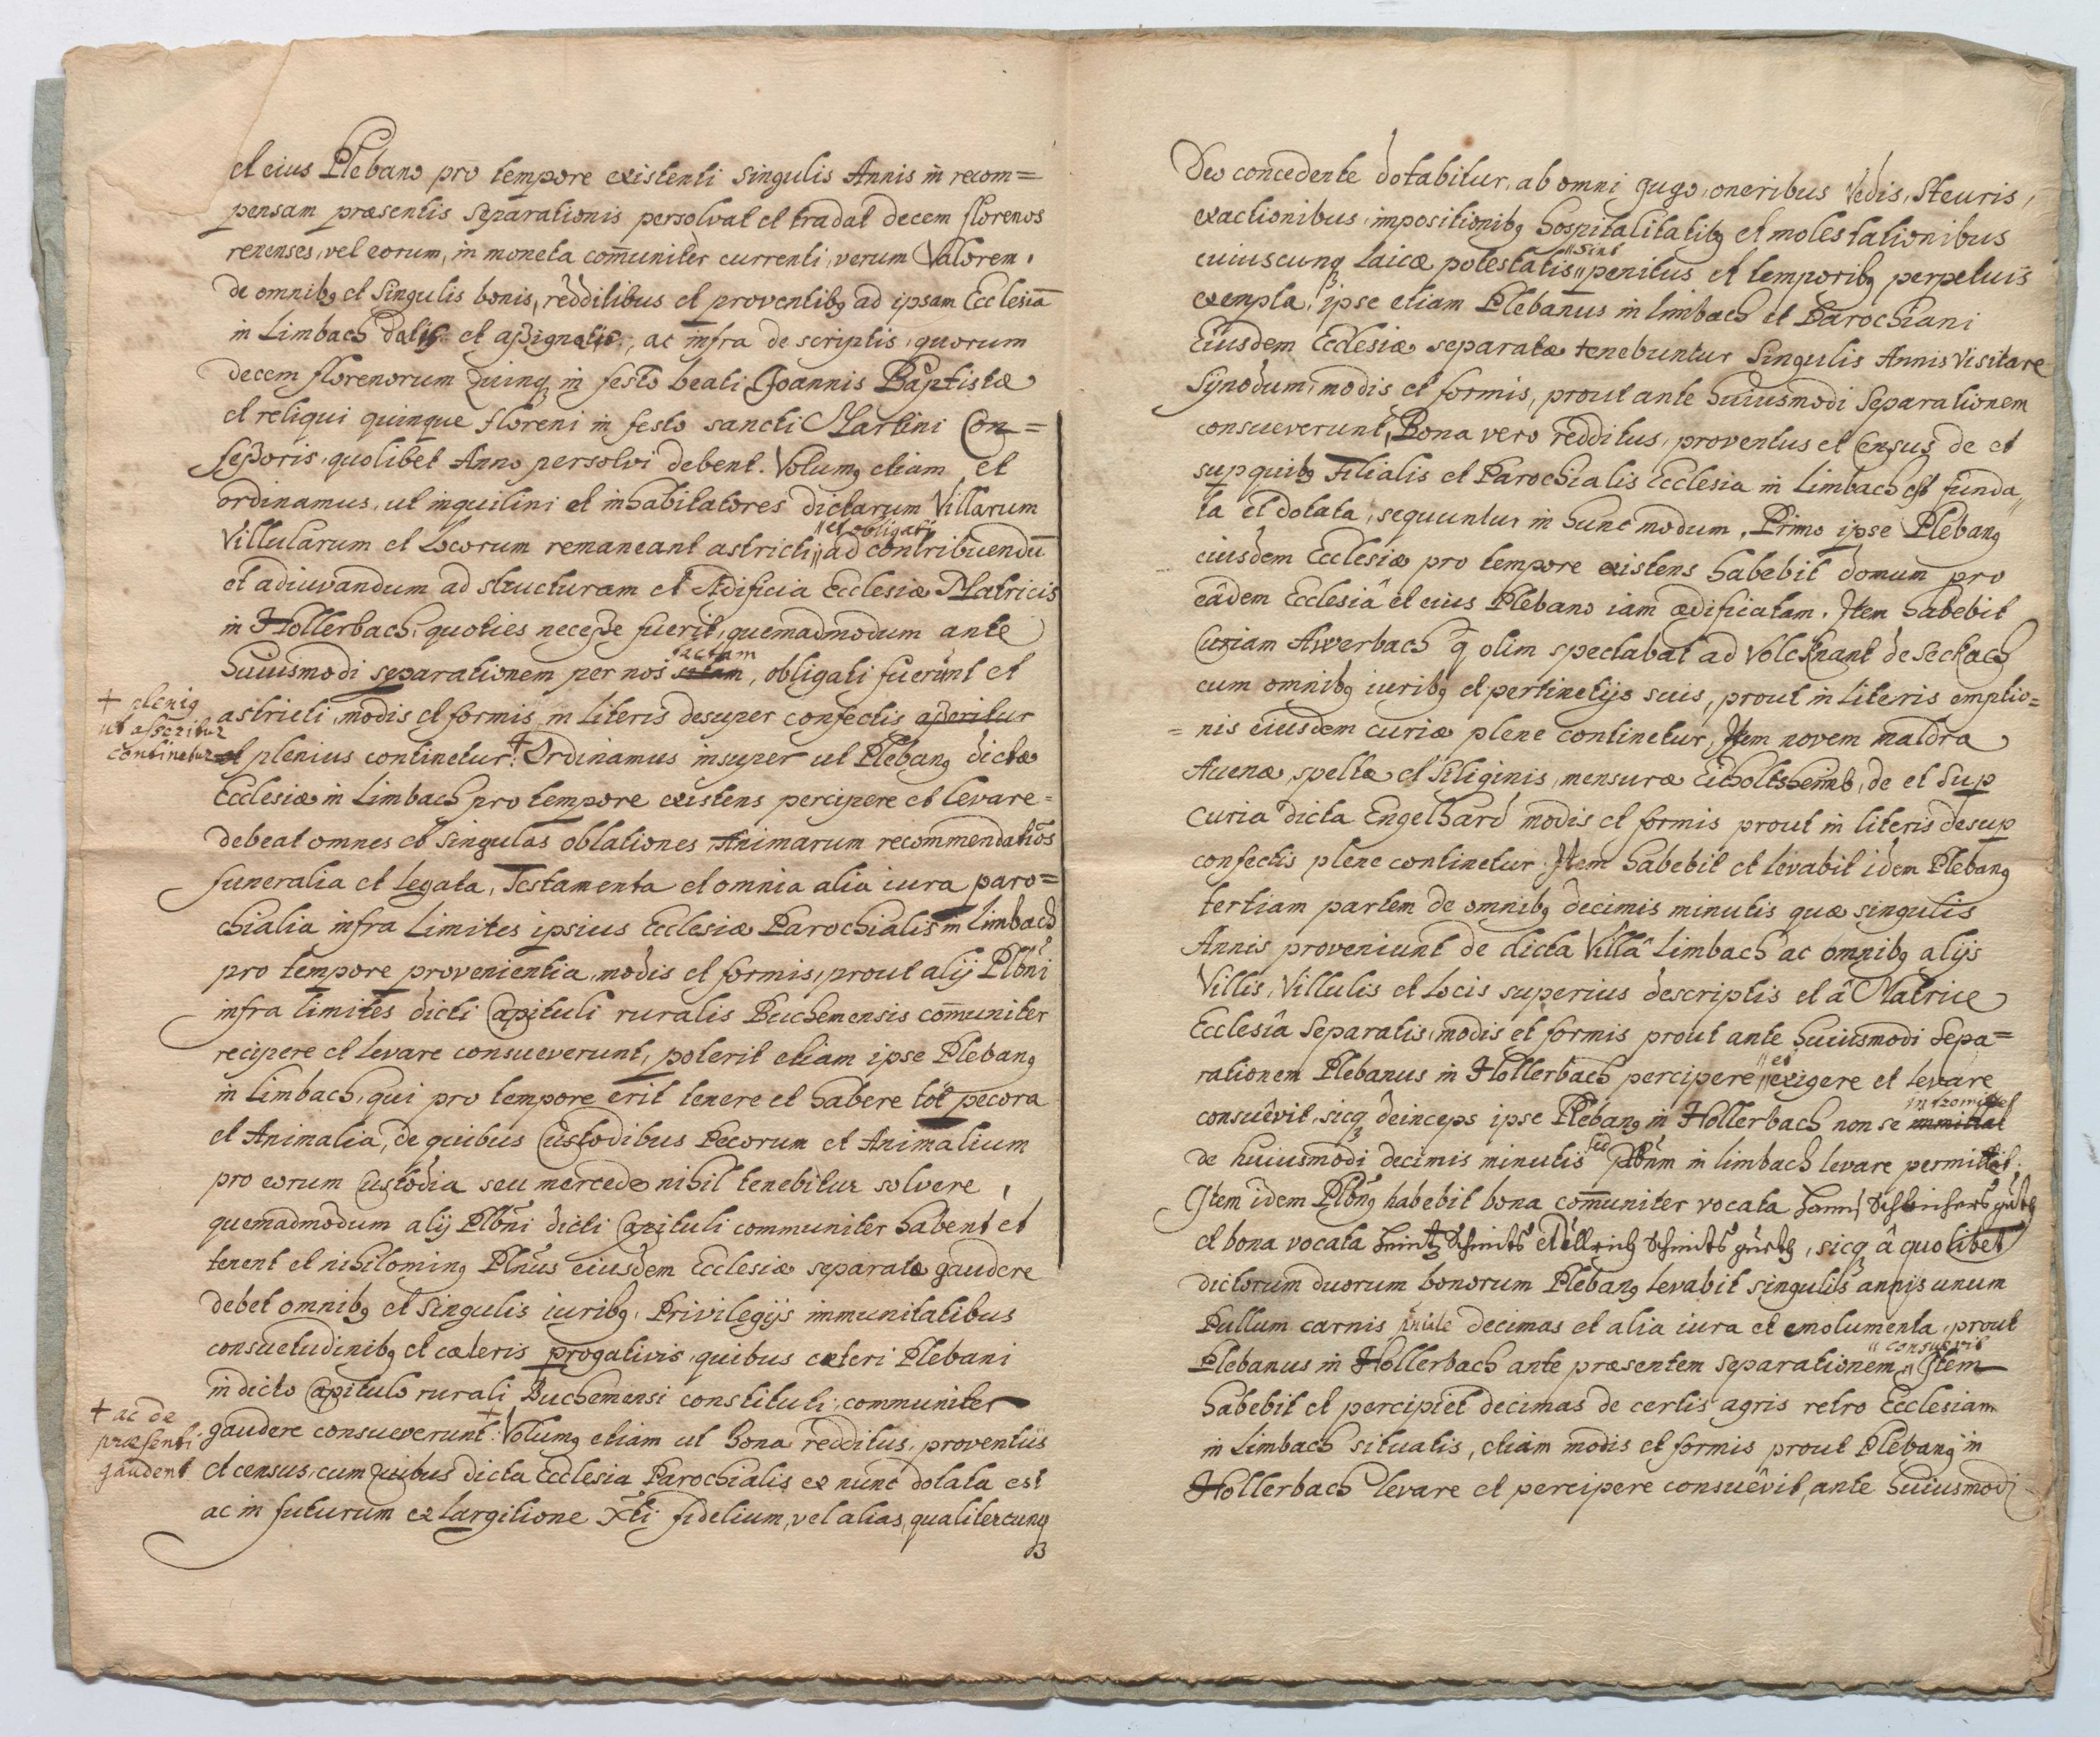 et eius Plebano pro tempore existenti singulis Annis in recom=
pensam præsentis separationis persolvat et tradat decem florenos
renenses, vel eorum, in moneta com̄uniter currenti, verum Valorem.
de omnibꝫ et singulis bonis, redditibus et proventibꝫ ad ipsam Ecclesiā
in Limbach datis et aßignatis, ac infra descriptis, quorum
decem florenorum quinqꝫ in festo beati Joannis Baptistæ
et reliqui quinque floreni in festo sancti Martini Con=
feßoris, quolibet Anno persolvi debent. Volumꝫ etiam et
ordinamus, ut inquilini et inhabitatores dictarum Villarum
Villularum et Locorum remaneant astricti // ad contribuendū
// et obligati
et adiuvandum ad structuram et Ædificia Ecclesiæ Matricis
in Hollerbach, quoties neceße fuerit, quemadmodum ante
huiusmodi separationem per nos factam, obligati fuerunt et
+ pleniꝫ
ut asseritur
continetur
astricti, modis et formis, in literis desuper confectis aßeritur
et plenius continetur.+ Ordinamus insuper ut Plebanꝫ dictæ
Ecclesiæ in Limbach pro tempore existens percipere et levare=
debeat omnes et singulas oblationes Animarum recommendatiōs
funeralia et Legata, Testamenta et omnia alia iura paro=
chialia infra Limites ipsius Ecclesiæ Parochialis in Limbach
pro tempore provenientia, modis et formis, prout alij Plbn̄i
infra limites dicti Capituli ruralis Buchemensis com̄uniter
recipere et levare consueverunt, poterit etiam ipse Plebanꝫ
in Limbach, qui pro tempore erit tenere et habere tot pecora
et Animalia, de quibus Custodibus Pecorum et Animalium
pro eorum Custodia seu mercede nihil tenebitur solvere,
quemadmodum alij Plbn̄i dicti Capituli communiter habent et
tenent et nihilominꝫ Plnūs eiusdem Ecclesiæ separatæ gaudere
debet omnibꝫ et singulis iuribꝫ, Privilegijs immunitatibus
consuetudinibꝫ et cæteris progativis, quibus cæteri Plebani
in dicto Capitulo rurali Buchemensi constituti, communiter
+ ac de
præsenti
gaudent
gaudere consueverunt.+ Volumꝫ etiam ut bona redditus, proventus
et census, cum quibus dicta Ecclesia Parochialis ex nunc dotata est
ac in futurum ex largitione Xti fidelium, vel alias, qualitercunqꝫ
Deo concedente dotabitur, ab omni gugo, oneribus Vedis, Steuris,
exactionibus, impositionibꝫ hospitalitatibꝫ et molestationibus
cuiuscunqꝫ Laicæ potestatis // penitus et temporibꝫ perpetuis
// sint
exempta, ipse etiam Plebanus in Limbach et Parochiani
Eiusdem Ecclesiæ separatæ tenebuntur Singulis Annis Visitare
Synodum, modis et formis, prout ante huiusmodi Separationem
consueverunt, Bona vero redditus, proventus et Census de et
sup quibꝫ Filialis et Parochialis Ecclesia in Limbach est funda//
ta et dotata, sequuntur in hunc modum. Primo ipse Plebanꝫ
eiusdem Ecclesiæ pro tempore existens habebit domum pro
eâdem Ecclesiâ et eius Plebano iam ædificatam. Item habebit
Curiam Awerbach q̄ olim spectabat ad Volcknant de Seckach
cum omnibꝫ iuribꝫ et pertinetijs suis, prout in literis emptio=
=nis eiusdem curiæ plene continetur, Item novem maldra
Avenæ, speltæ et siliginis, mensuræ Eiholtsheimb, de et sup
Curia dicta Engelhard modis et formis prout in literis desup
confectis plene continetur. Item habebit et levabit idem Plebanꝫ
tertiam partem de omnibꝫ decimis minutis quæ singulis
Annis proveniunt de dicta Villâ Limbach ac omnibꝫ alijs
Villis, Villulis et Locis superius descriptis et â Matrice
Ecclesiâ Separatis, modis et formis prout ante huiusmodi Sepa=
rationem Plebanus in Hollerbach percipere // exigere et levare
// et
consuêvit, sicqꝫ deinceps ipse Plebanꝫ in Hollerbach non se immittat
intromittet
de huiusmodi decimis minutis sed plbn̄m in limbach levare permittet.
Item idem Plbn̄ꝫ habebit bona com̄uniter vocata
et bona vocata Heintz Schmits Schmits gueth, sicqꝫ â quolibet
dictorum duorum bonorum Plebanꝫ levabit singulis annis unum
Pullum carnis decimas et alia iura et emolumenta, prout
Plebanus in Hollerbach ante præsentem separationem // Item
// consuevit
habebit et percipiet decimas de certis agris retro Ecclesiam
in Limbach situatis, etiam modis et formis prout Plebanꝫ in
Hollerbach levare et percipere consuêvit, ante huiusmodi